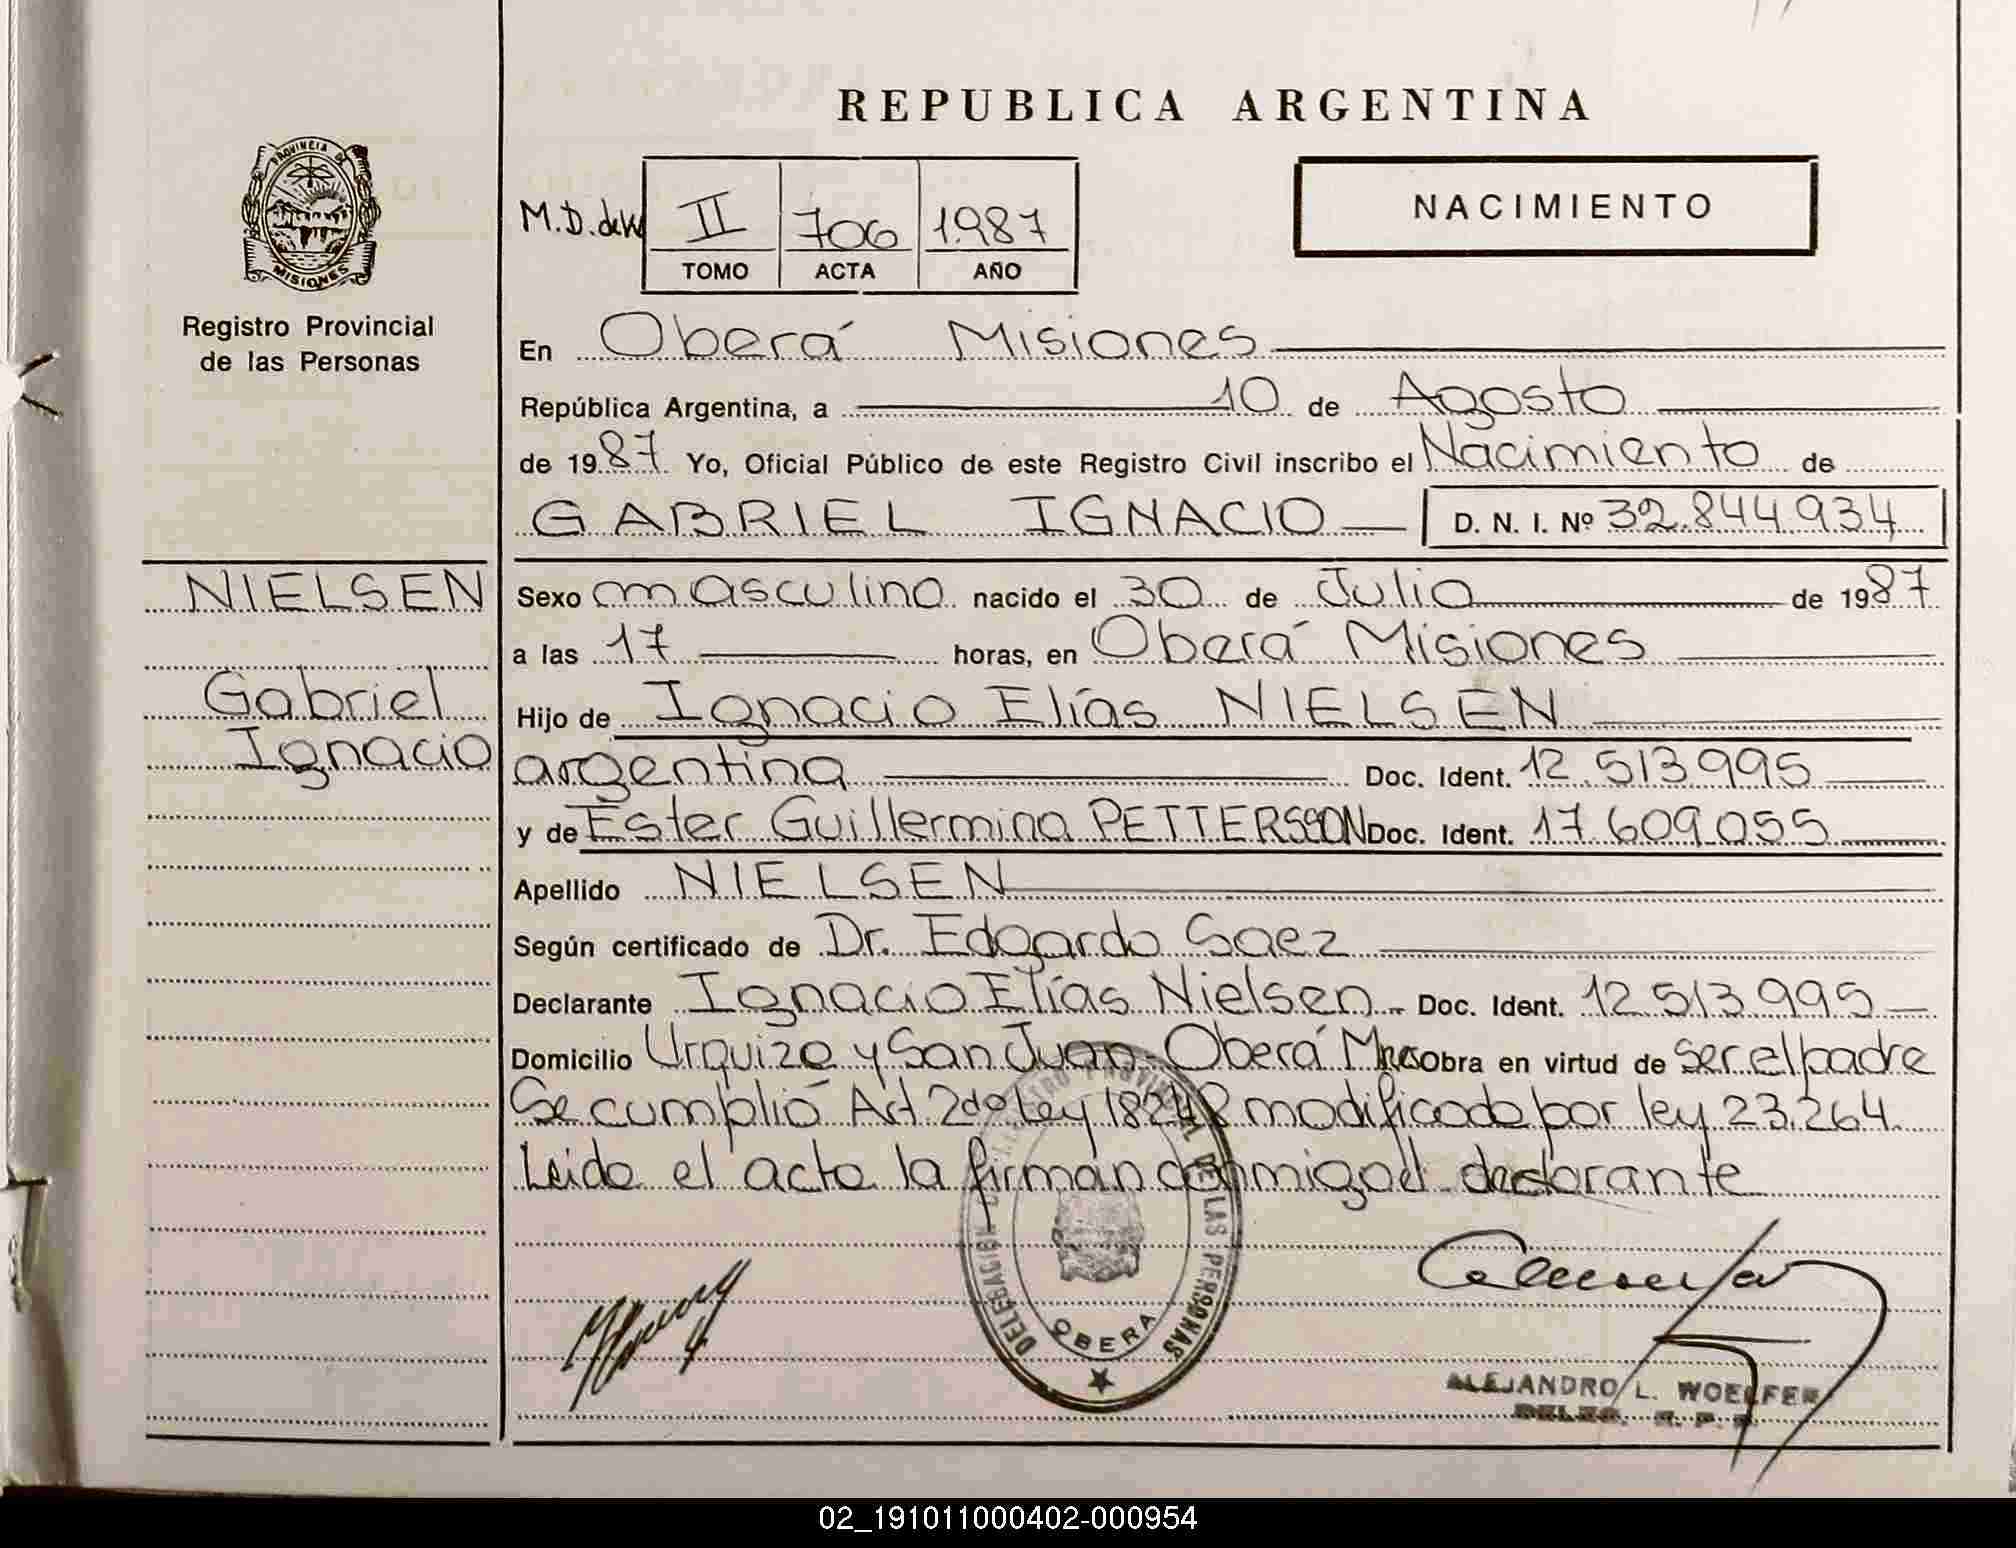 REPUBLICA ARGENTINA
PROVINCIA DE
MISIONES
Registro Provincial
de las Personas
M.D. de
II 706 1987
TOMO ACTA AÑO
NACIMIENTO
En Oberá Misiones
República Argentina, a 10 de Agosto
de 1987 Yo, Oficial Público de este Registro Civil inscribo el Nacimiento de
GABRIEL IGNACIO D. N. I. Nº 32.844.934
NIELSEN
Gabriel
Ignacio
Sexo masculino nacido el 30 de Julio de 1987
a las 17 horas, en Oberá Misiones
Hijo de Ignacio Elías NIELSEN
argentina Doc. Ident. 12.513.995
y de Ester Guillermina PETTERSSON Doc. Ident. 17.609.055
Apellido NIELSEN
Según certificado de Dr. Edgardo Saez
Declarante Ignacio Elías Nielsen Doc. Ident. 12.513.995
Domicilio Urquiza y San Juan - Oberá Mnes Obra en virtud de ser el padre
Se cumplió Art. 2do Ley 18248 modificada por ley 23.264.
Leida el acta la firman conmigo el declarante
DELEGACION REGISTRO PROVINCIAL DE LAS PERSONAS
OBERA
ALEJANDRO L. WOELFER
DELEG. R. P. P.
02_191011000402-000954